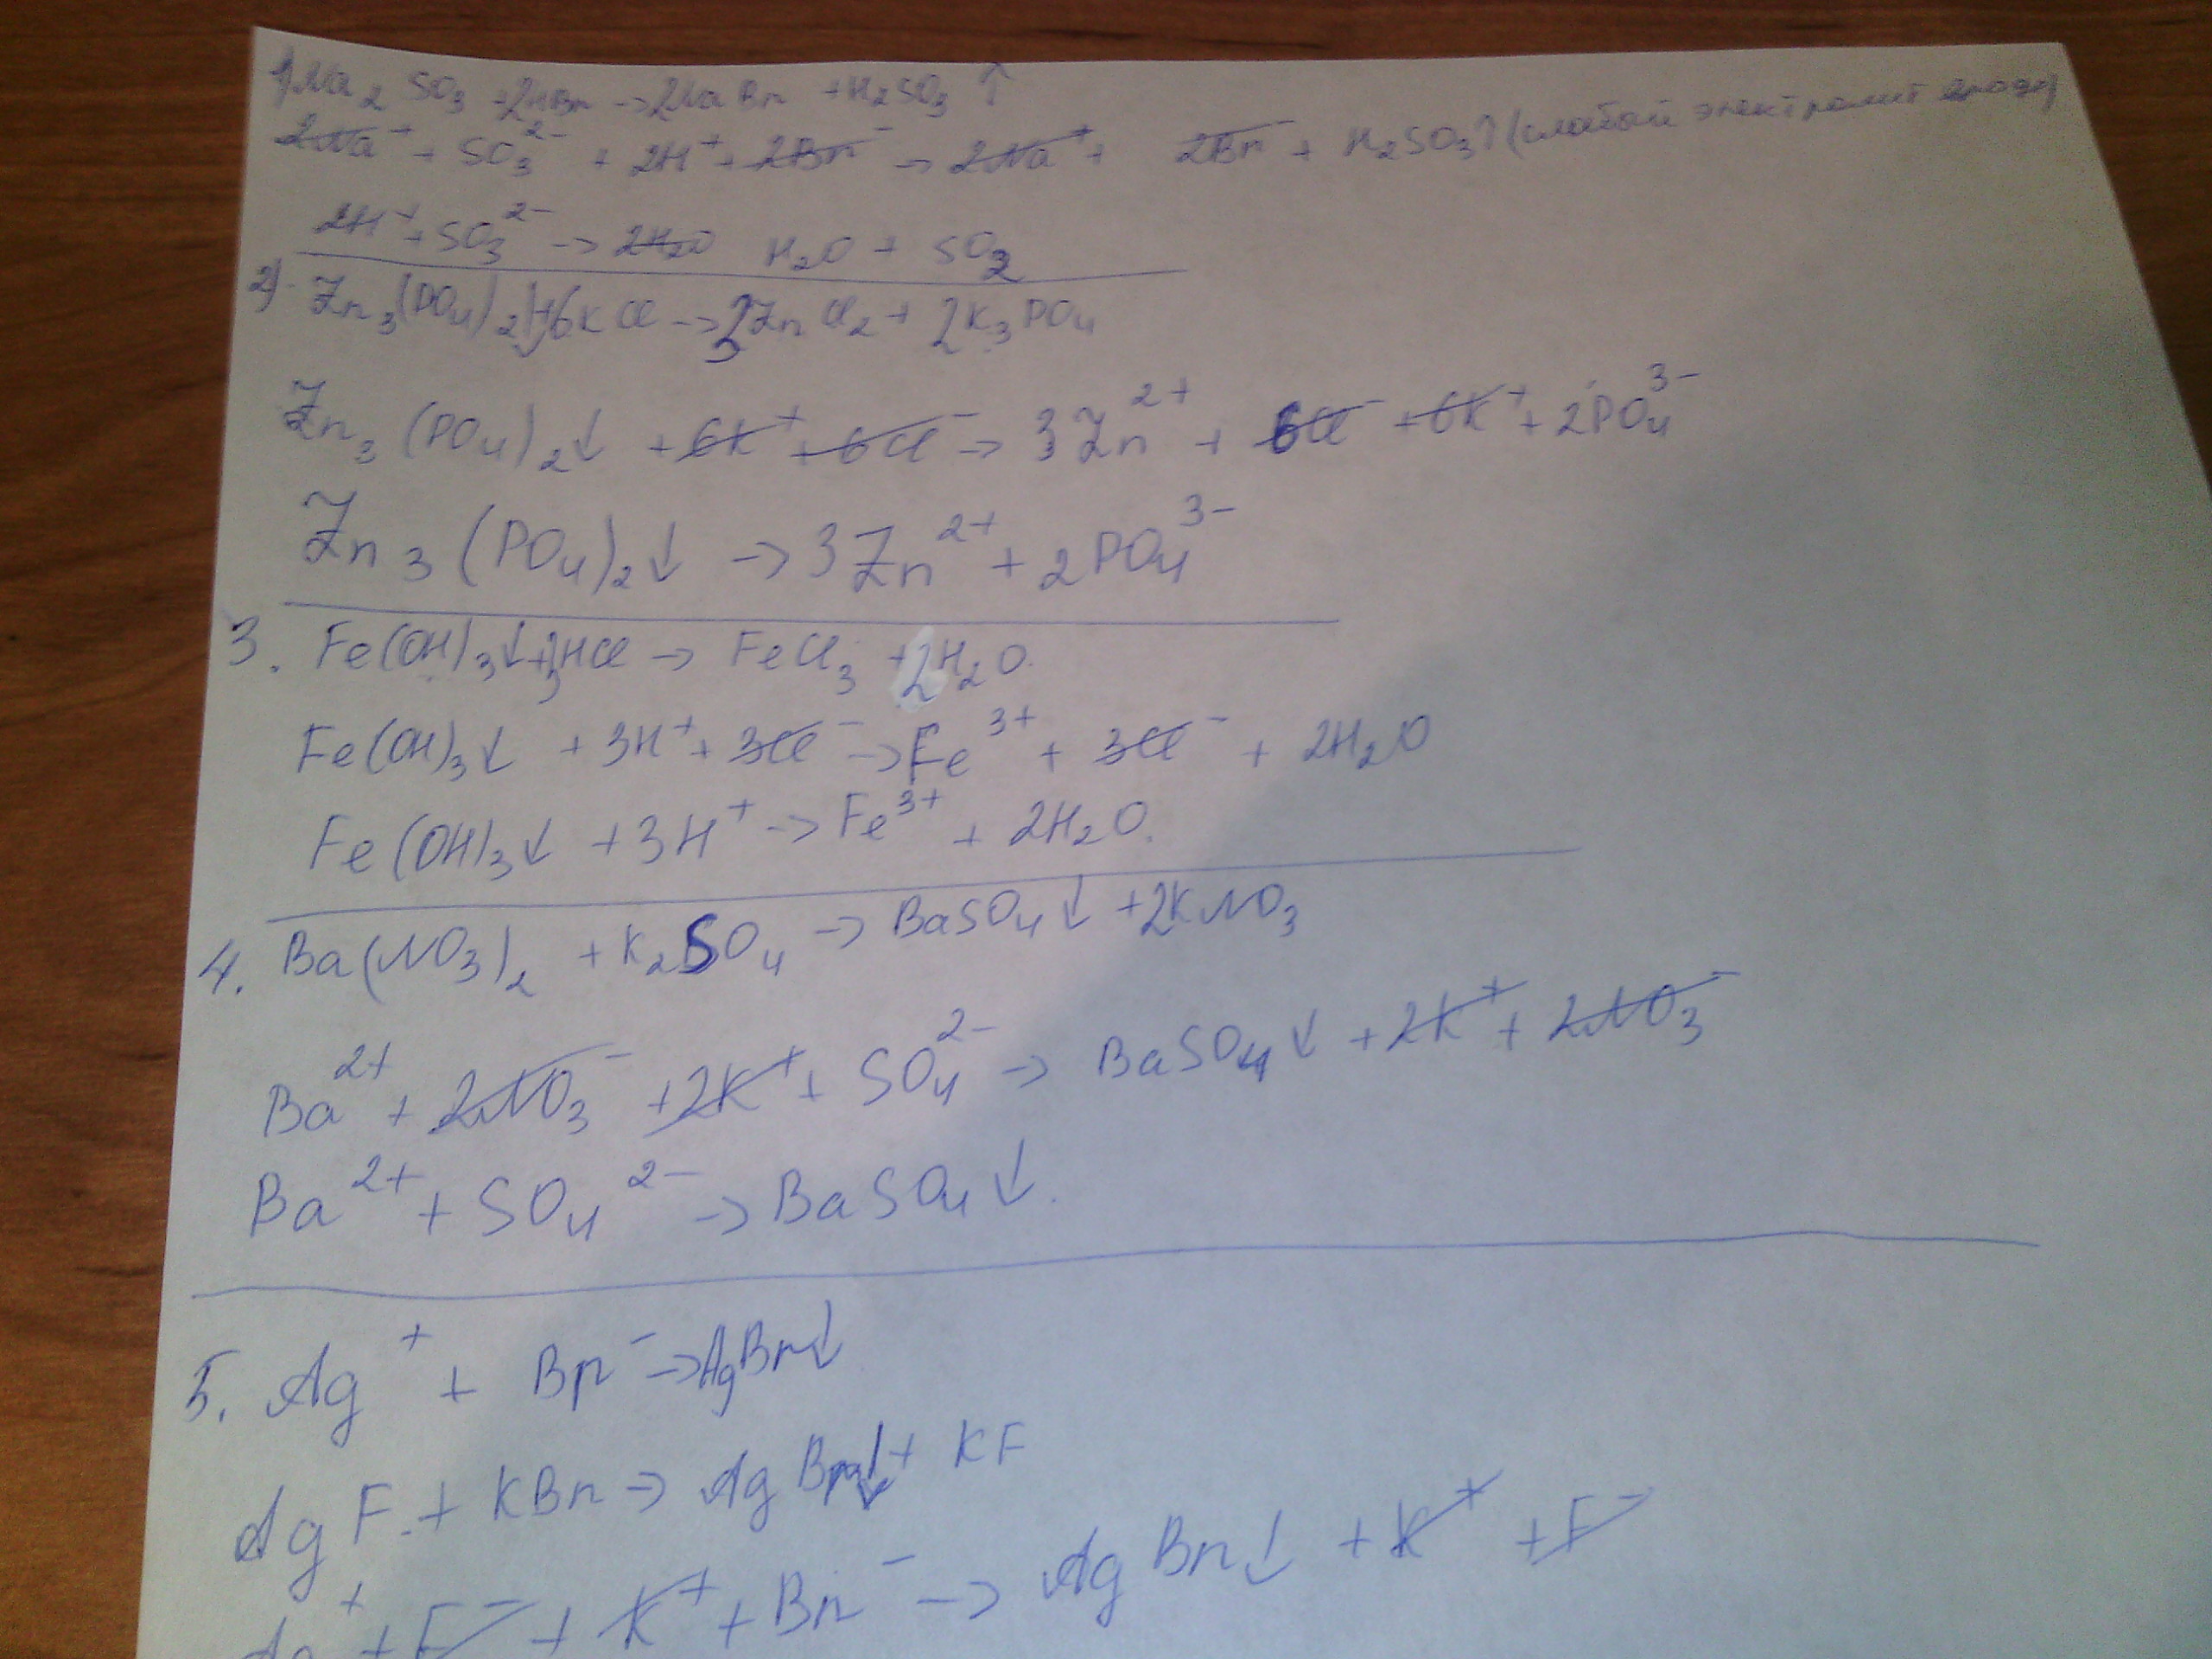 1) Na₂SO₃ + 2HBr → 2NaBr + H₂SO₃↑
2Na⁺ + SO₃²⁻ + 2H⁺ + 2Br⁻ → 2Na⁺ + 2Br⁻ + H₂SO₃↑ (слабый электролит
2H⁺ + SO₃²⁻ → 2H₂O H₂O + SO₂
2) Zn₃(PO₄)₂↓ + 6KCl → 3ZnCl₂ + 2K₃PO₄
Zn₃(PO₄)₂↓ + 6K⁺ + 6Cl⁻ → 3Zn²⁺ + 6Cl⁻ + 6K⁺ + 2PO₄³⁻
Zn₃(PO₄)₂↓ → 3Zn²⁺ + 2PO₄³⁻
3. Fe(OH)₃↓ + 3HCl → FeCl₃ + 2H₂O.
Fe(OH)₃↓ + 3H⁺ + 3Cl⁻ → Fe³⁺ + 3Cl⁻ + 2H₂O
Fe(OH)₃↓ + 3H⁺ → Fe³⁺ + 2H₂O.
4. Ba(NO₃)₂ + K₂SO₄ → BaSO₄↓ + 2KNO₃
Ba²⁺ + 2NO₃⁻ + 2K⁺ + SO₄²⁻ → BaSO₄↓ + 2K⁺ + 2NO₃⁻
Ba²⁺ + SO₄²⁻ → BaSO₄↓.
5. Ag⁺ + Br⁻ → AgBr↓
AgF + KBr → AgBr↓ + KF
Ag⁺ + F⁻ + K⁺ + Br⁻ → AgBr↓ + K⁺ + F⁻